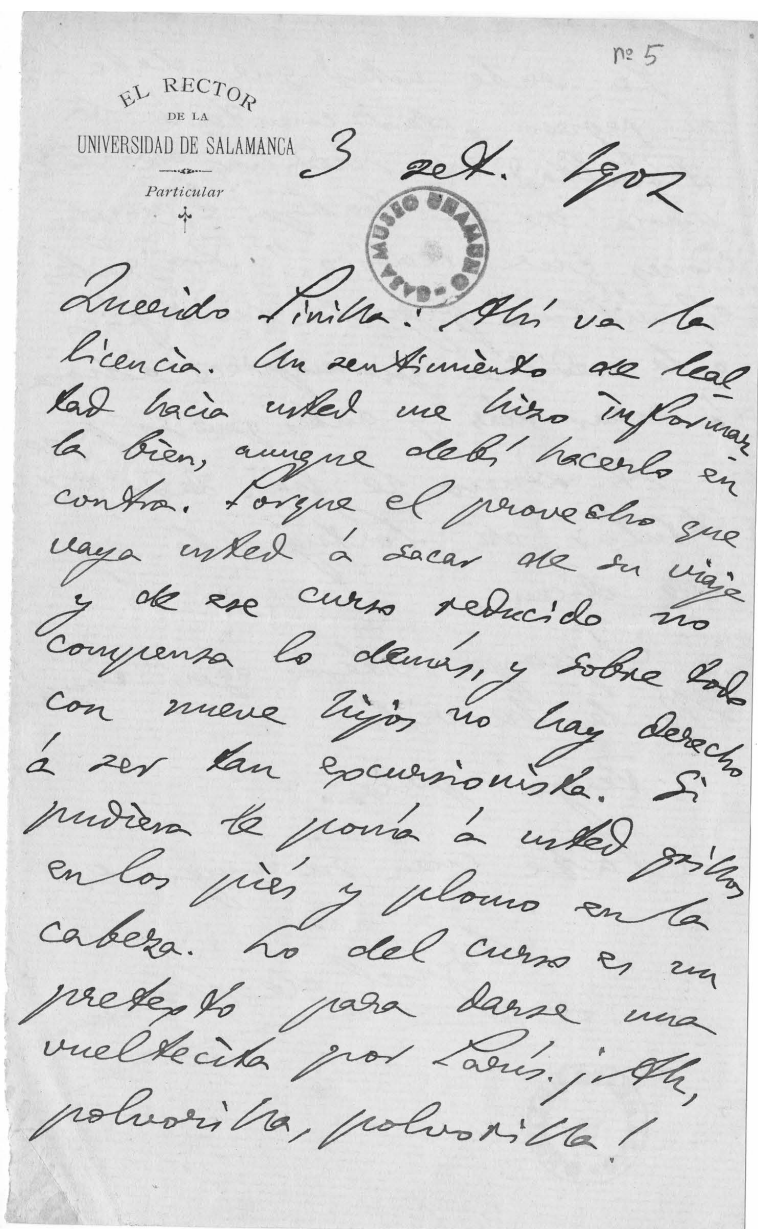 nº 5
EL RECTOR
DE LA
UNIVERSIDAD DE SALAMANCA
Particular
3 set. 1902
CASA MUSEO UNAMUNO
Querido Pinilla: Ahí va la
licencia. Un sentimiento de leal-
tad hacia usted me hizo informar
la bien, aunque debí hacerlo en
contra. Porque el provecho que
vaya usted á sacar de su viaje
y de ese curso reducido no
compensa lo demás, y sobre todo
con nueve hijos no hay derecho
á ser tan excursionista. Si
pudiera le ponía á usted grillos
en los piés y plomo en la
cabeza. Lo del curso es un
pretexto para darse una
vueltecita por París. ¡Ah,
polvorilla, polvorilla!